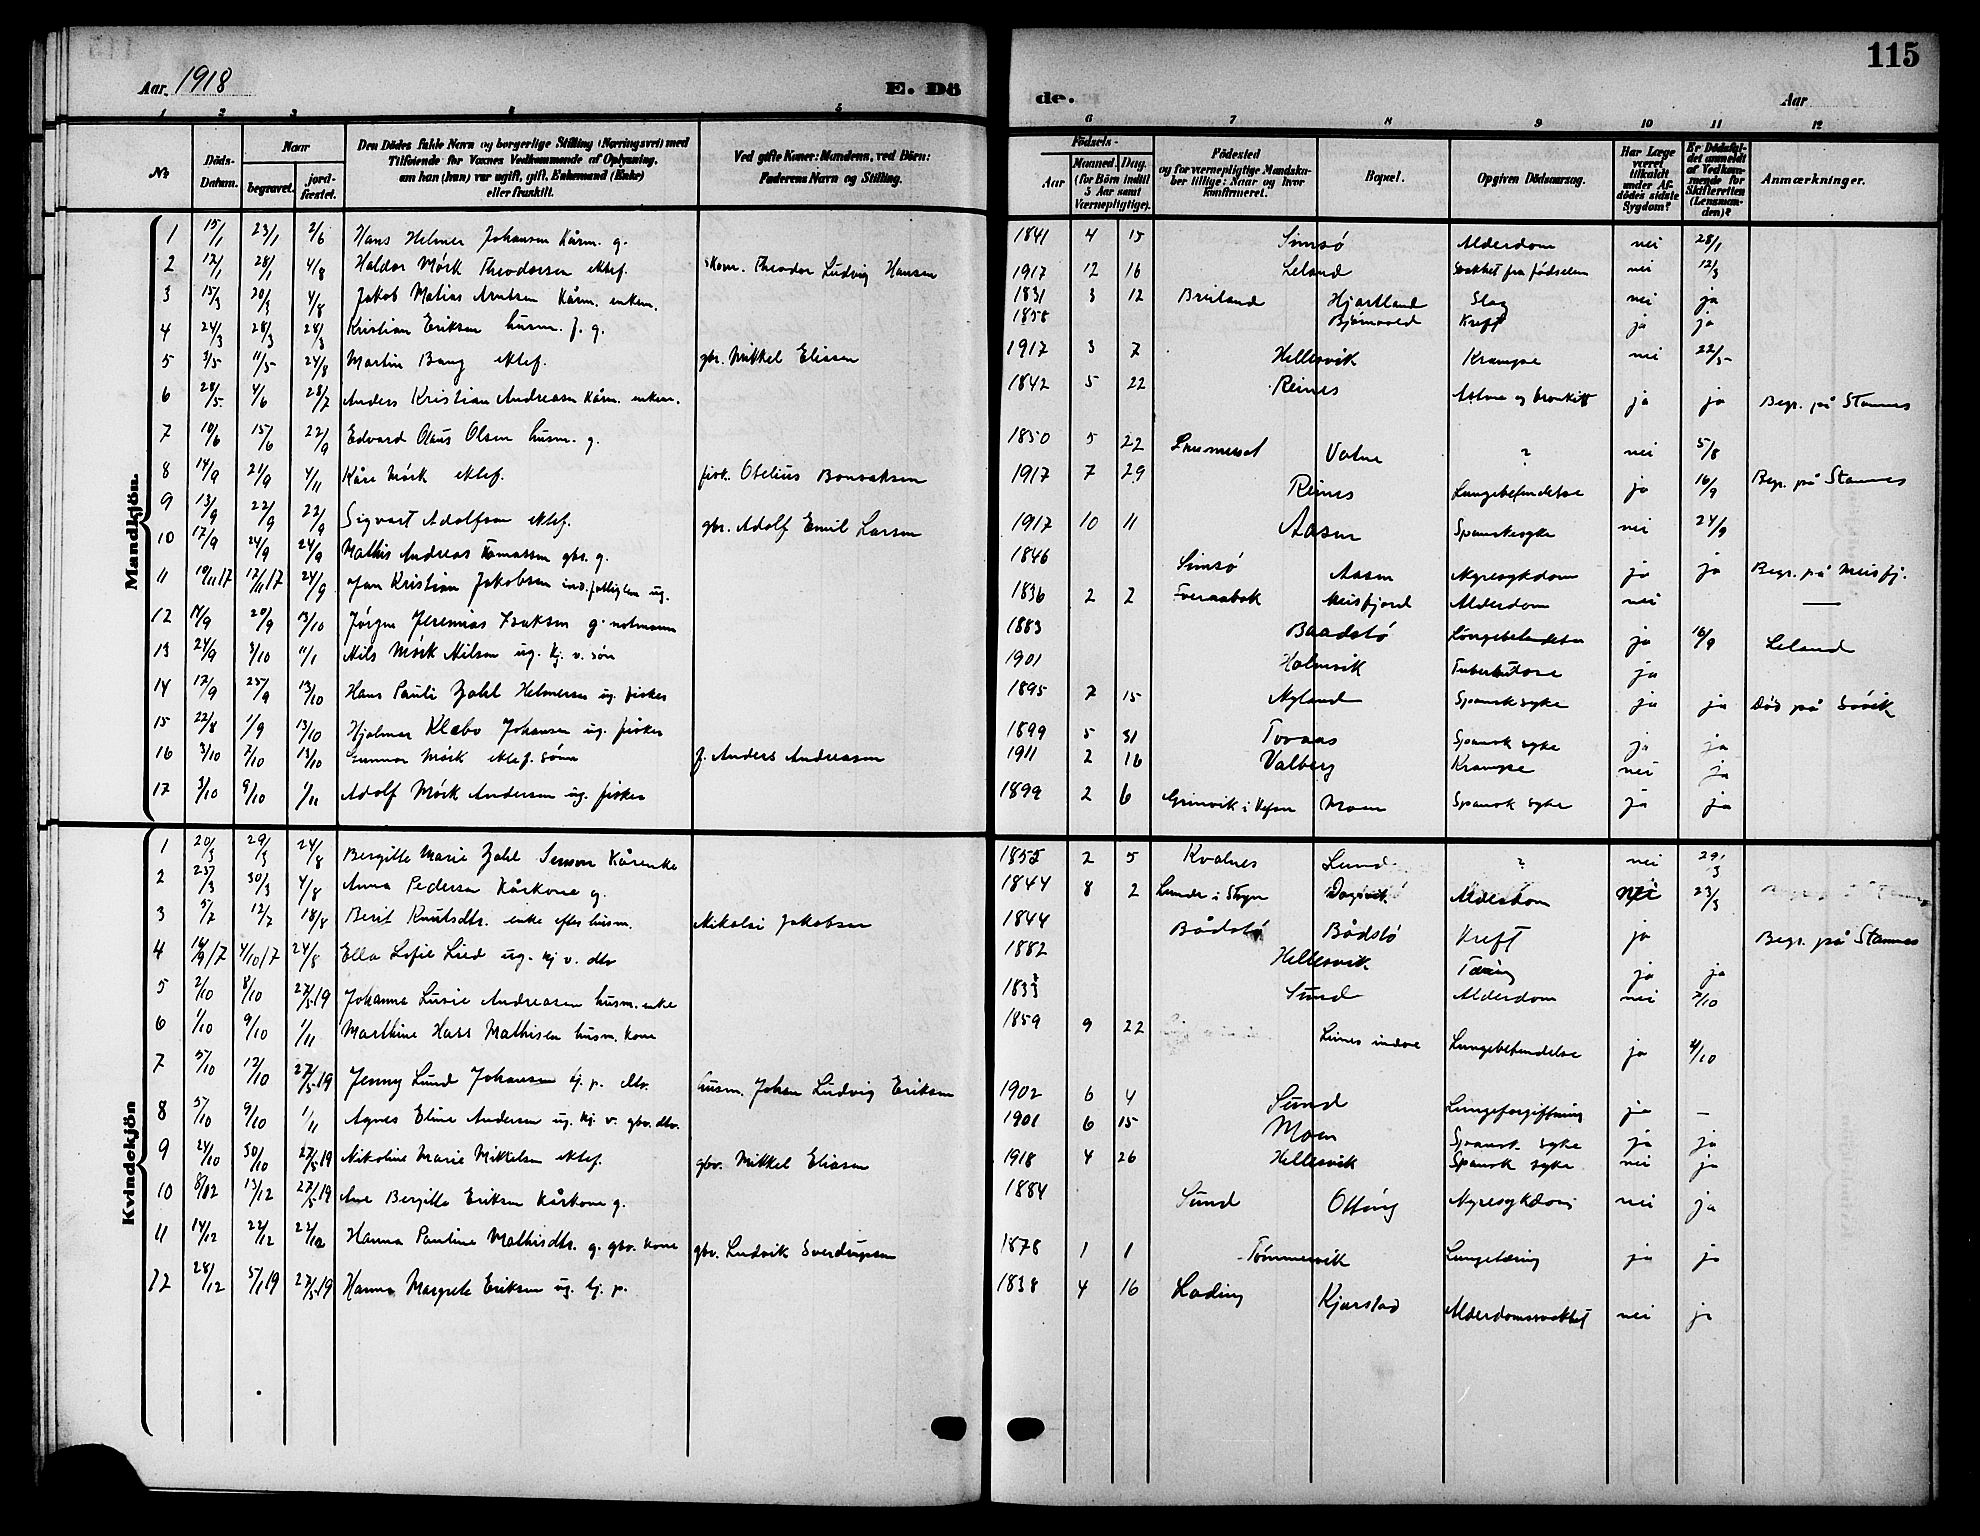 115
Aar. 1918 E. Dö de. Aar
1 2 3 4 5 6 7 8 9 10 11 12
No
Döds-Datum.
Naar
begravet.
jord-fæstet.
Den Dödes fulde Navn og borgerlige Stilling (Næringsvei) med Tilföiende for Voxnes Vedkommende af Oplysning, om han (hun) var ugift, gift, Enkemand (Enke) eller fraskilt.
Ved gifte Koner: Mandens, ved Börn: Faderens Navn og Stilling.
Födsels-
Aar
Maaned. Dag. (for Börn indtil 5 Aar samt Værnepligtige).
Födested og for værnepligtige Mandskaber tillige: Naar og hvor konfirmeret.
Bopæl.
Opgiven Dödsaarsag.
Har Læge været tilkaldt under Afdödes sidste Sygdom?
Er Dödsfaldet anmeldt af Vedkommende for Skifteretten (Lensmanden)?
Anmærkninger.
Mandkjön.
1 15/1 23/1 2/6 Hans Helmer Johansen Kårm. g. 1841 4 15 Simsö Alderdom nei 28/1
2 12/1 28/1 4/8 Haldor Mörk Theodorsen ektef. Theodor Ludvig Hansen 1917 12 16 Leland Svakhet fra födselen nei 12/3
3 15/3 20/3 4/8 Jakob Matias Arntsen Kårm. enkem. 1831 3 12 Breiland Hjartland Slag nei ja
4 24/3 28/3 28/3 Kristian Eriksen husm. f. g. 1858 Bjørnvold Kreft ja ja
5 3/5 11/5 24/8 Martin Bang ektef. gbr. Mikkel Eliasen 1917 3 7 Hellesvik Krampe nei 22/5
6 28/5 4/6 28/7 Anders Kristian Andreasen Kårm. enkem. 1842 5 22 Reines Astma og bronkitt ja ja Begr. på Stamnes
7 10/6 15/6 22/9 Edvard Olaus Olsen husm. g. 1850 5 22 Valne ? nei 5/8
8 14/9 21/9 4/11 Kåre Mörk ektef. fisk. Otelius Bonsaksen 1917 7 29 Reines Lungebetendelse ja 16/9 Begr. på Stamnes
9 13/9 22/9 22/9 Sigvart Adolfsen ektef. gbr. Adolf Emil Larsen 1917 10 11 Aasen Spanskesyke nei 24/9
10 17/9 24/9 24/9 Mathis Andreas Tomassen gbr. g. 1846 Simsö Aasen Nyresykdom ja ja Begr. på Meisfj.
11 10/11 17 12/11 17 24/9 Jan Kristian Jakobsen ind. fattiglem ug. 1836 2 2 Tveraabak Meisfjord Alderdom nei —
12 14/9 20/9 13/10 Jörgen Jeremias Isaksen g. notmann 1883 Baadstö Lungebetendelse ja 16/9 Leland
13 24/9 3/10 11/1 Nils Mörk Nilsen ug. kj. v. sön 1901 Holmvik Tuberkulose ja
14 12/9 25/9 13/10 Hans Pauli Zahl Helmersen ug. fisker 1895 7 15 Nyland Spansk syke ja ja Död på Sövik
15 22/8 1/9 13/10 Hjalmar Klæbo Johansen ug. fisker 1899 5 31 Toraas Spansk syke ja ja
16 3/10 7/10 13/10 Gunnar Mörk ektef. sönn f. Anders Andreasen 1911 2 16 Valberg Krampe nei ja
17 3/10 9/10 1/11 Adolf Mörk Andersen ug. fisker 1899 2 6 Grinvik i Vefsn Moen Spansk syke ja ja
Kvindekjön
1 20/3 29/3 24/8 Bergitte Marie Zahl Jenson Kårenke 1855 2 5 Kvalnes Lund ? nei 29/3
2 23/3 30/3 4/8 Anna Pedersen Kårkone g. 1844 8 2 Dagsvik Alderdom nei 23/3
3 5/7 12/7 18/8 Berit Knutsdtr. enke efter husm. Nikolai Jakobsen 1844 Bådstö Bådstö Kreft ja Begr. på Stamnes
4 14/9 17 4/10 17 24/8 Ella Sofie Lied ug. kj v. dtr 1882 Hellesvik Tæring ja ja
5 2/10 8/10 27/5 19 Johanna Lusie Andreasen husm. enke 1833 Sund Alderdom nei 7/10
6 1/10 9/10 1/11 Marthine Hass Mathisen husm. kone 1859 9 22 Leines indre Lungebetendelse ja 4/10
7 5/10 12/10 27/5 19 Jenny Lund Johansen kj. p. dtr. husm. Johan Ludvig Eriksen 1902 6 4 Sund Lungeforgiftning ja —
8 5/10 9/10 1/11 Agnes Eline Andersen ug. kj v. gbr. dtr. 1901 6 15 Moen Spansk syke ja ja
9 24/10 30/10 27/5 19 Nikoline Marie Mikkelsen ektef. gbr. Mikkel Eliasen 1918 4 26 Hellesvik Spansk syke nei ja
10 8/12 13/12 27/5 19 Ane Bergitte Eriksen Kårkone g. 1884 Sund Otting Nyresykdom nei ja
11 14/12 22/12 22/12 Hanna Pauline Mathisdtr. g. gbr. kone gbr. Ludvik Sverdrupsen 1878 1 1 Tömmervik Lungetæring ja ja
12 28/12 5/1 19 27/5 19 Hanna Margrete Eriksen ug. kj. p. 1838 4 16 Lading Kjærstad Alderdomssvakhet nei ja